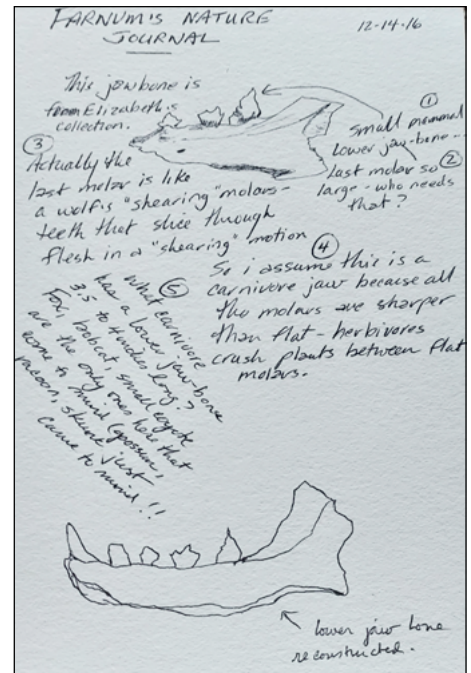 FARNUM'S NATURE
JOURNAL
12-14-16
This jawbone is
from Elizabeth's
collection.
①
small mammal
lower jaw-bone -
Last molar so ②
large - who needs
that?
③
Actually the
last molar is like
a wolf's "shearing" molars -
teeth that slice through
flesh in a "shearing" motion
④
So i assume this is a
carnivore jaw because all
the molars are sharper
than flat - herbivores
crush plants between flat
molars.
⑤
What carnivore
has a lower jaw-bone
3.5 to 4 inches long?
Fox, bobcat, small coyote
are the only ones here that
come to mind (opossum,
racoon, skunk just
came to mind!!
lower jaw bone
reconstructed.